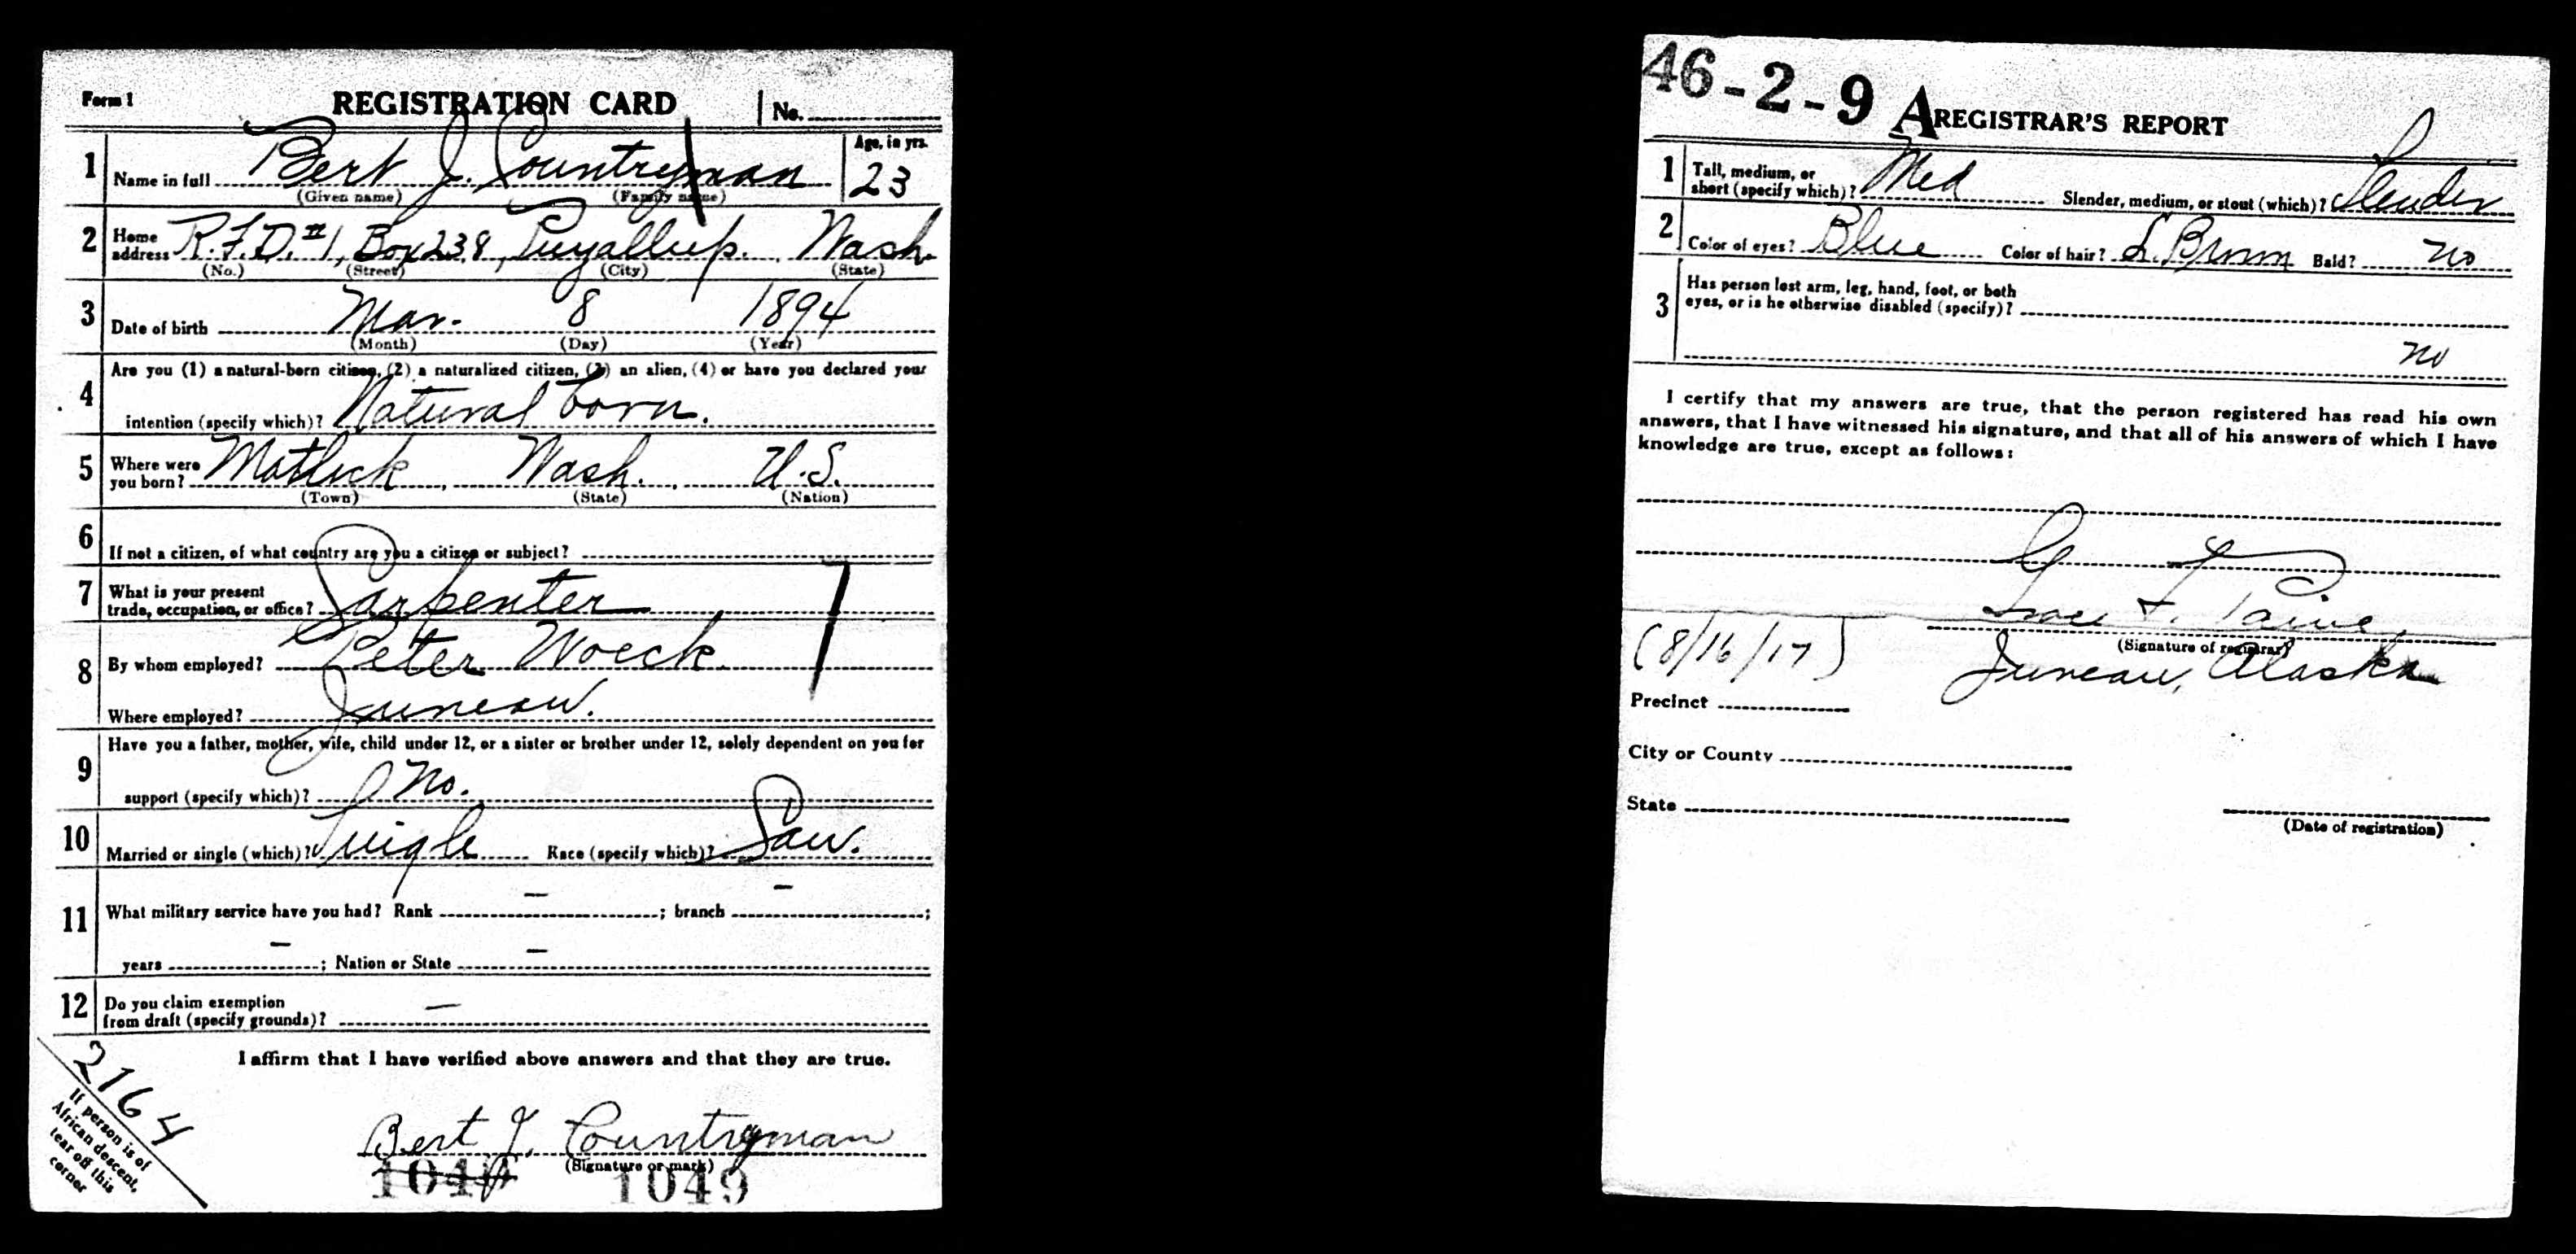 Form 1 REGISTRATION CARD No.
1 Name in full Bert J. Countryman Age, in yrs. 23
(Given name) (Family name)
2 Home address R.F.D. #1, Box 238, Puyallup. Wash.
(No.) (Street) (City) (State)
3 Date of birth Mar. 8 1894
(Month) (Day) (Year)
4 Are you (1) a natural-born citizen, (2) a naturalized citizen, (3) an alien, (4) or have you declared your
intention (specify which)? Natural born.
5 Where were you born? Matlock, Wash. U.S.
(Town) (State) (Nation)
6 If not a citizen, of what country are you a citizen or subject?
7 What is your present trade, occupation, or office? Carpenter
8 By whom employed? Peter Woeck
Where employed? Juneau.
9 Have you a father, mother, wife, child under 12, or a sister or brother under 12, solely dependent on you for
support (specify which)? No.
10 Married or single (which)? Single Race (specify which)? Cau.
11 What military service have you had? Rank — ; branch — ;
years — ; Nation or State —
12 Do you claim exemption from draft (specify grounds)? —
I affirm that I have verified above answers and that they are true.
2164
If person is of
African descent,
tear off this
corner
Bert J. Countryman
(Signature or mark)
1049
46-2-9 A REGISTRAR'S REPORT
1 Tall, medium, or short (specify which)? Med Slender, medium, or stout (which)? Slender
2 Color of eyes? Blue Color of hair? L. Brown Bald? no
3 Has person lost arm, leg, hand, foot, or both
eyes, or is he otherwise disabled (specify)?
no
I certify that my answers are true, that the person registered has read his own
answers, that I have witnessed his signature, and that all of his answers of which I have
knowledge are true, except as follows:
(Signature of registrar)
(8/16/17) Juneau, Alaska
Precinct
City or County
State
(Date of registration)